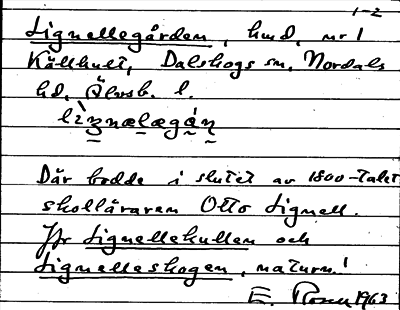 1-2
Lignellegården, hmd, nr 1
Källhult, Dalskogs sn, Nordals
hd, Älvsb. l.
Där bodde i slutet av 1800-talet
skolläraren Otto Lignell.
Jfr Lignellekullen och
Lignelleskogen, naturn!
E. Rosen 1963